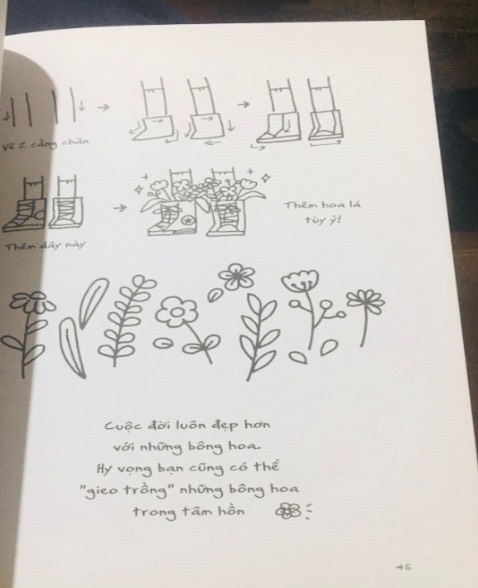 Vẽ 2 cẳng chân
Thêm dây này
Thêm hoa lá
tùy ý!
Cuộc đời luôn đẹp hơn
với những bông hoa.
Hy vọng bạn cũng có thể
"gieo trồng" những bông hoa
trong tâm hồn
45